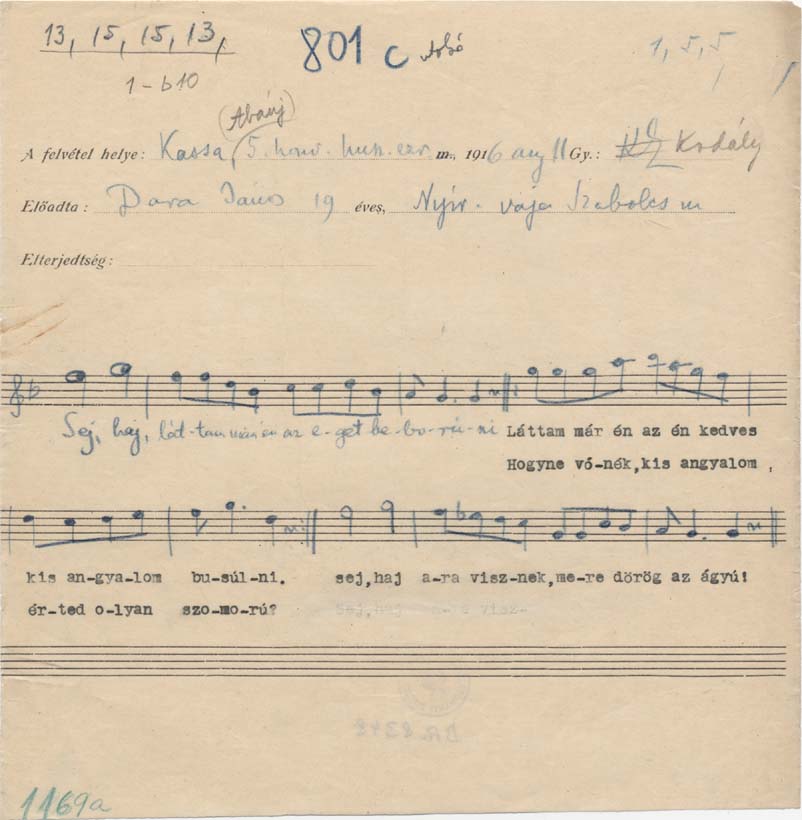 13, 15, 15, 13,
801 c
1, 5, 5
1-b10
(Abaúj)
A felvétel helye: Kassa, 5. honv. hus. ezr. m., 1916 aug 11 Gy.: Kodály
Előadta: Dara János 19 éves, Nyír-vaja Szabolcs m
Elterjedtség:
Sej, haj, lát-tam már én az e-get be-bo-rú-ni Láttam már én az én kedves
Hogyne vó-nék,kis angyalom ,
kis an-gya-lom bu-súl-ni. sej,haj a-ra visz-nek,me-re dörög az ágyú!
ér-ted o-lyan szo-mo-rú? sej,haj a-ra visz-
BR 8348
1169a